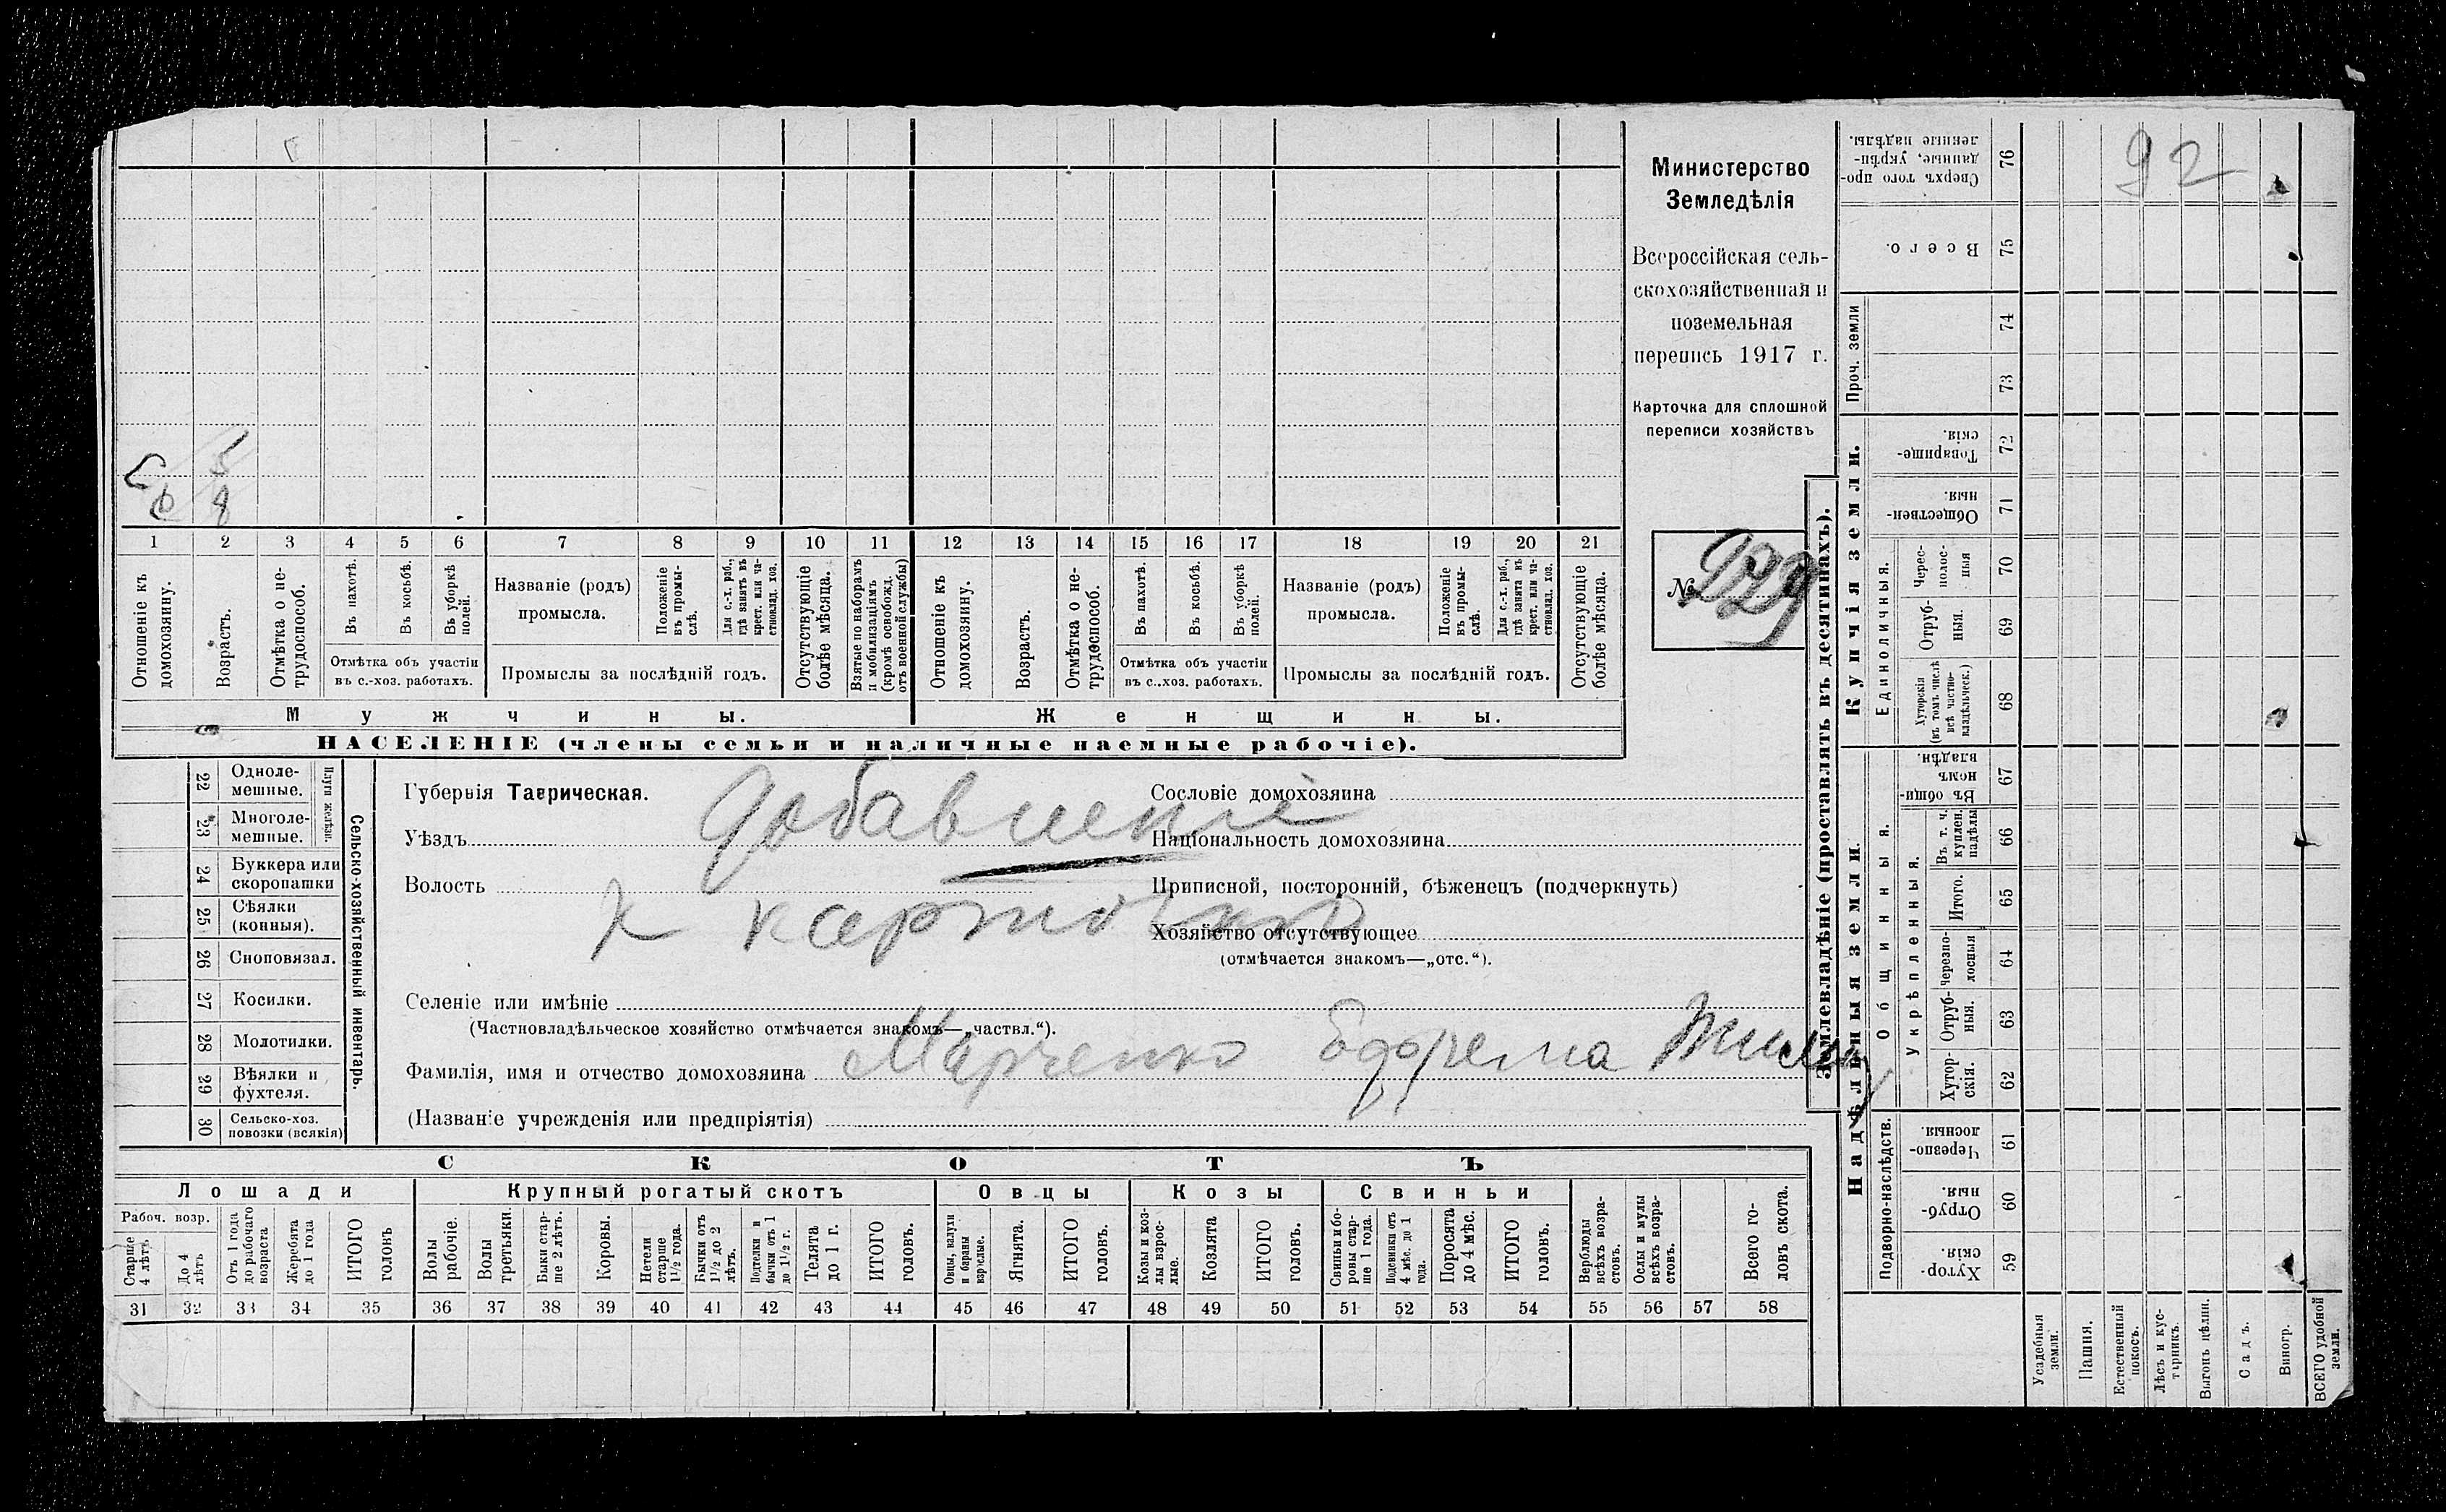 92
С 5
в 8
1 2 3 4 5 6 7 8 9 10 11 12 13 14 15 16 17 18 19 20 21
Отношеніе къ домохозяину.
Возрастъ.
Отмѣтка о нетрудоспособ.
Въ пахотѣ.
Въ косьбѣ.
Въ уборкѣ полей.
Отмѣтка объ участіи
въ с.-хоз. работахъ.
Названіе (родъ)
промысла.
Положеніе въ промыслѣ.
Для с.-х. раб., гдѣ занятъ въ крест. или частновлад. хоз.
Промыслы за послѣдній годъ.
Отсутствующіе болѣе мѣсяца.
Взятые по наборамъ и мобилизаціямъ (кромѣ освобожд. отъ военной службы)
Отношеніе къ домохозяину.
Возрастъ.
Отмѣтка о нетрудоспособ.
Въ пахотѣ.
Въ косьбѣ.
Въ уборкѣ полей.
Отмѣтка объ участіи
въ с.-хоз. работахъ.
Названіе (родъ)
промысла.
Положеніе въ промыслѣ.
Для с.-х. раб., гдѣ занята въ крест. или частновлад. хоз.
Промыслы за послѣдній годъ.
Отсутствующіе болѣе мѣсяца.
Мужчины.
Женщины.
НАСЕЛЕНІЕ (члены семьи и наличные наемные рабочіе).
Министерство
Земледѣлія
Всероссійская сель-
скохозяйственная и
поземельная
перепись 1917 г.
Карточка для сплошной
переписи хозяйствъ
№ 929
22 Одноле-
мешные.
23 Многоле-
мешные.
Плуги желѣзн.
24 Буккера или
скоропашки
25 Сѣялки
(конныя).
26 Сноповязал.
27 Косилки.
28 Молотилки.
29 Вѣялки и
фухтеля.
30 Сельско-хоз.
повозки (всякія)
Сельско-хозяйственный инвентарь.
Губернія Таврическая.
Добавленіе
Уѣздъ
Волость
к карточкѣ
Селеніе или имѣніе
(Частновладѣльческое хозяйство отмѣчается знакомъ—„частвл.“).
Фамилія, имя и отчество домохозяина Марченко Ефрема
(Названіе учрежденія или предпріятія)
Сословіе домохозяина
Національность домохозяина
Приписной, посторонній, бѣженецъ (подчеркнуть)
Хозяйство отсутствующее
(отмѣчается знакомъ—„отс.“).
СКОТЪ
Лошади Крупный рогатый скотъ Овцы Козы Свиньи
Рабоч. возр.
Старше 4 лѣтъ.
До 4 лѣтъ
Отъ 1 года до рабочаго возраста
Жеребята до 1 года
ИТОГО головъ
Волы рабочіе.
Волы третьяки.
Быки старше 2 лѣтъ.
Коровы.
Нетели старше 1½ года.
Бычки отъ 1½ до 2 лѣтъ.
Подтелки и бычки отъ 1 до 1½ г.
Телята до 1 г.
ИТОГО головъ.
Овцы, валухи и бараны взрослые.
Ягнята.
ИТОГО головъ.
Козы и козлы взрослые.
Козлята
ИТОГО головъ.
Свиньи и боровы старше 1 года.
Подсвинки отъ 4 мѣс. до 1 года.
Поросята до 4 мѣс.
ИТОГО головъ.
Верблюды всѣхъ возрастовъ.
Ослы и мулы всѣхъ возрастовъ.
Всего головъ скота.
31 32 33 34 35 36 37 38 39 40 41 42 43 44 45 46 47 48 49 50 51 52 53 54 55 56 57 58
Землевладѣніе (проставлять въ десятинахъ).
Купчія земли.
Надѣльныя земли.
Сверхъ того проданные, укрѣпленные надѣлы. 76
Всего. 75
Проч. земли 74
73
Товарищескія. 72
Общественныя. 71
Единоличныя.
Чересполосныя 70
Отрубныя. 69
Хуторскія (въ томъ числѣ всѣ частновладѣльческ.) 68
Общинныя.
Въ общинномъ владѣн. 67
Укрѣпленныя.
Въ т. ч. куплен. надѣлы 66
Итого. 65
Черезполосныя 64
Отрубныя. 63
Хуторскія. 62
Подворно-наслѣдств.
Черезполосныя. 61
Отрубныя. 60
Хуторскія. 59
Усадебныя земли.
Пашня.
Естественный покосъ.
Лѣсъ и кустарникъ.
Выгонъ цѣлин.
Садъ.
Виногр.
ВСЕГО удобной земли.